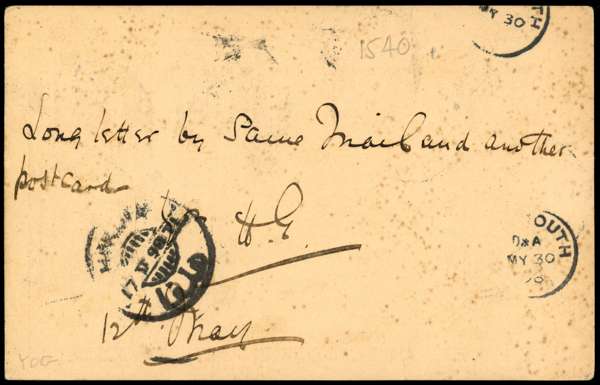 OUTH
MY 30
1540
Long letter by Same Mail and another
postcard
H.G.
OUTH
D*A
MY 30
12th May